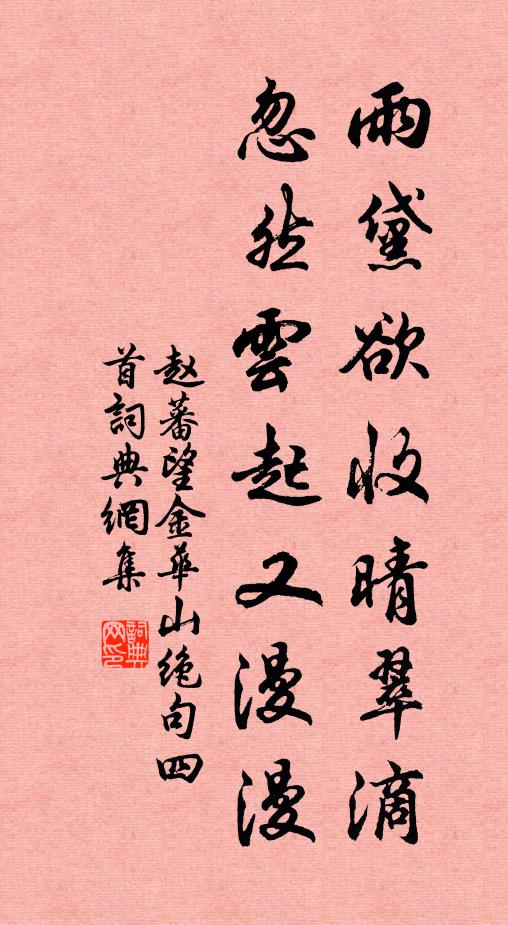 雨黛欲收晴翠滴
忽然雲起又漫漫
赵蕃望金华山絶句四
首詞典網集
詞典
网印